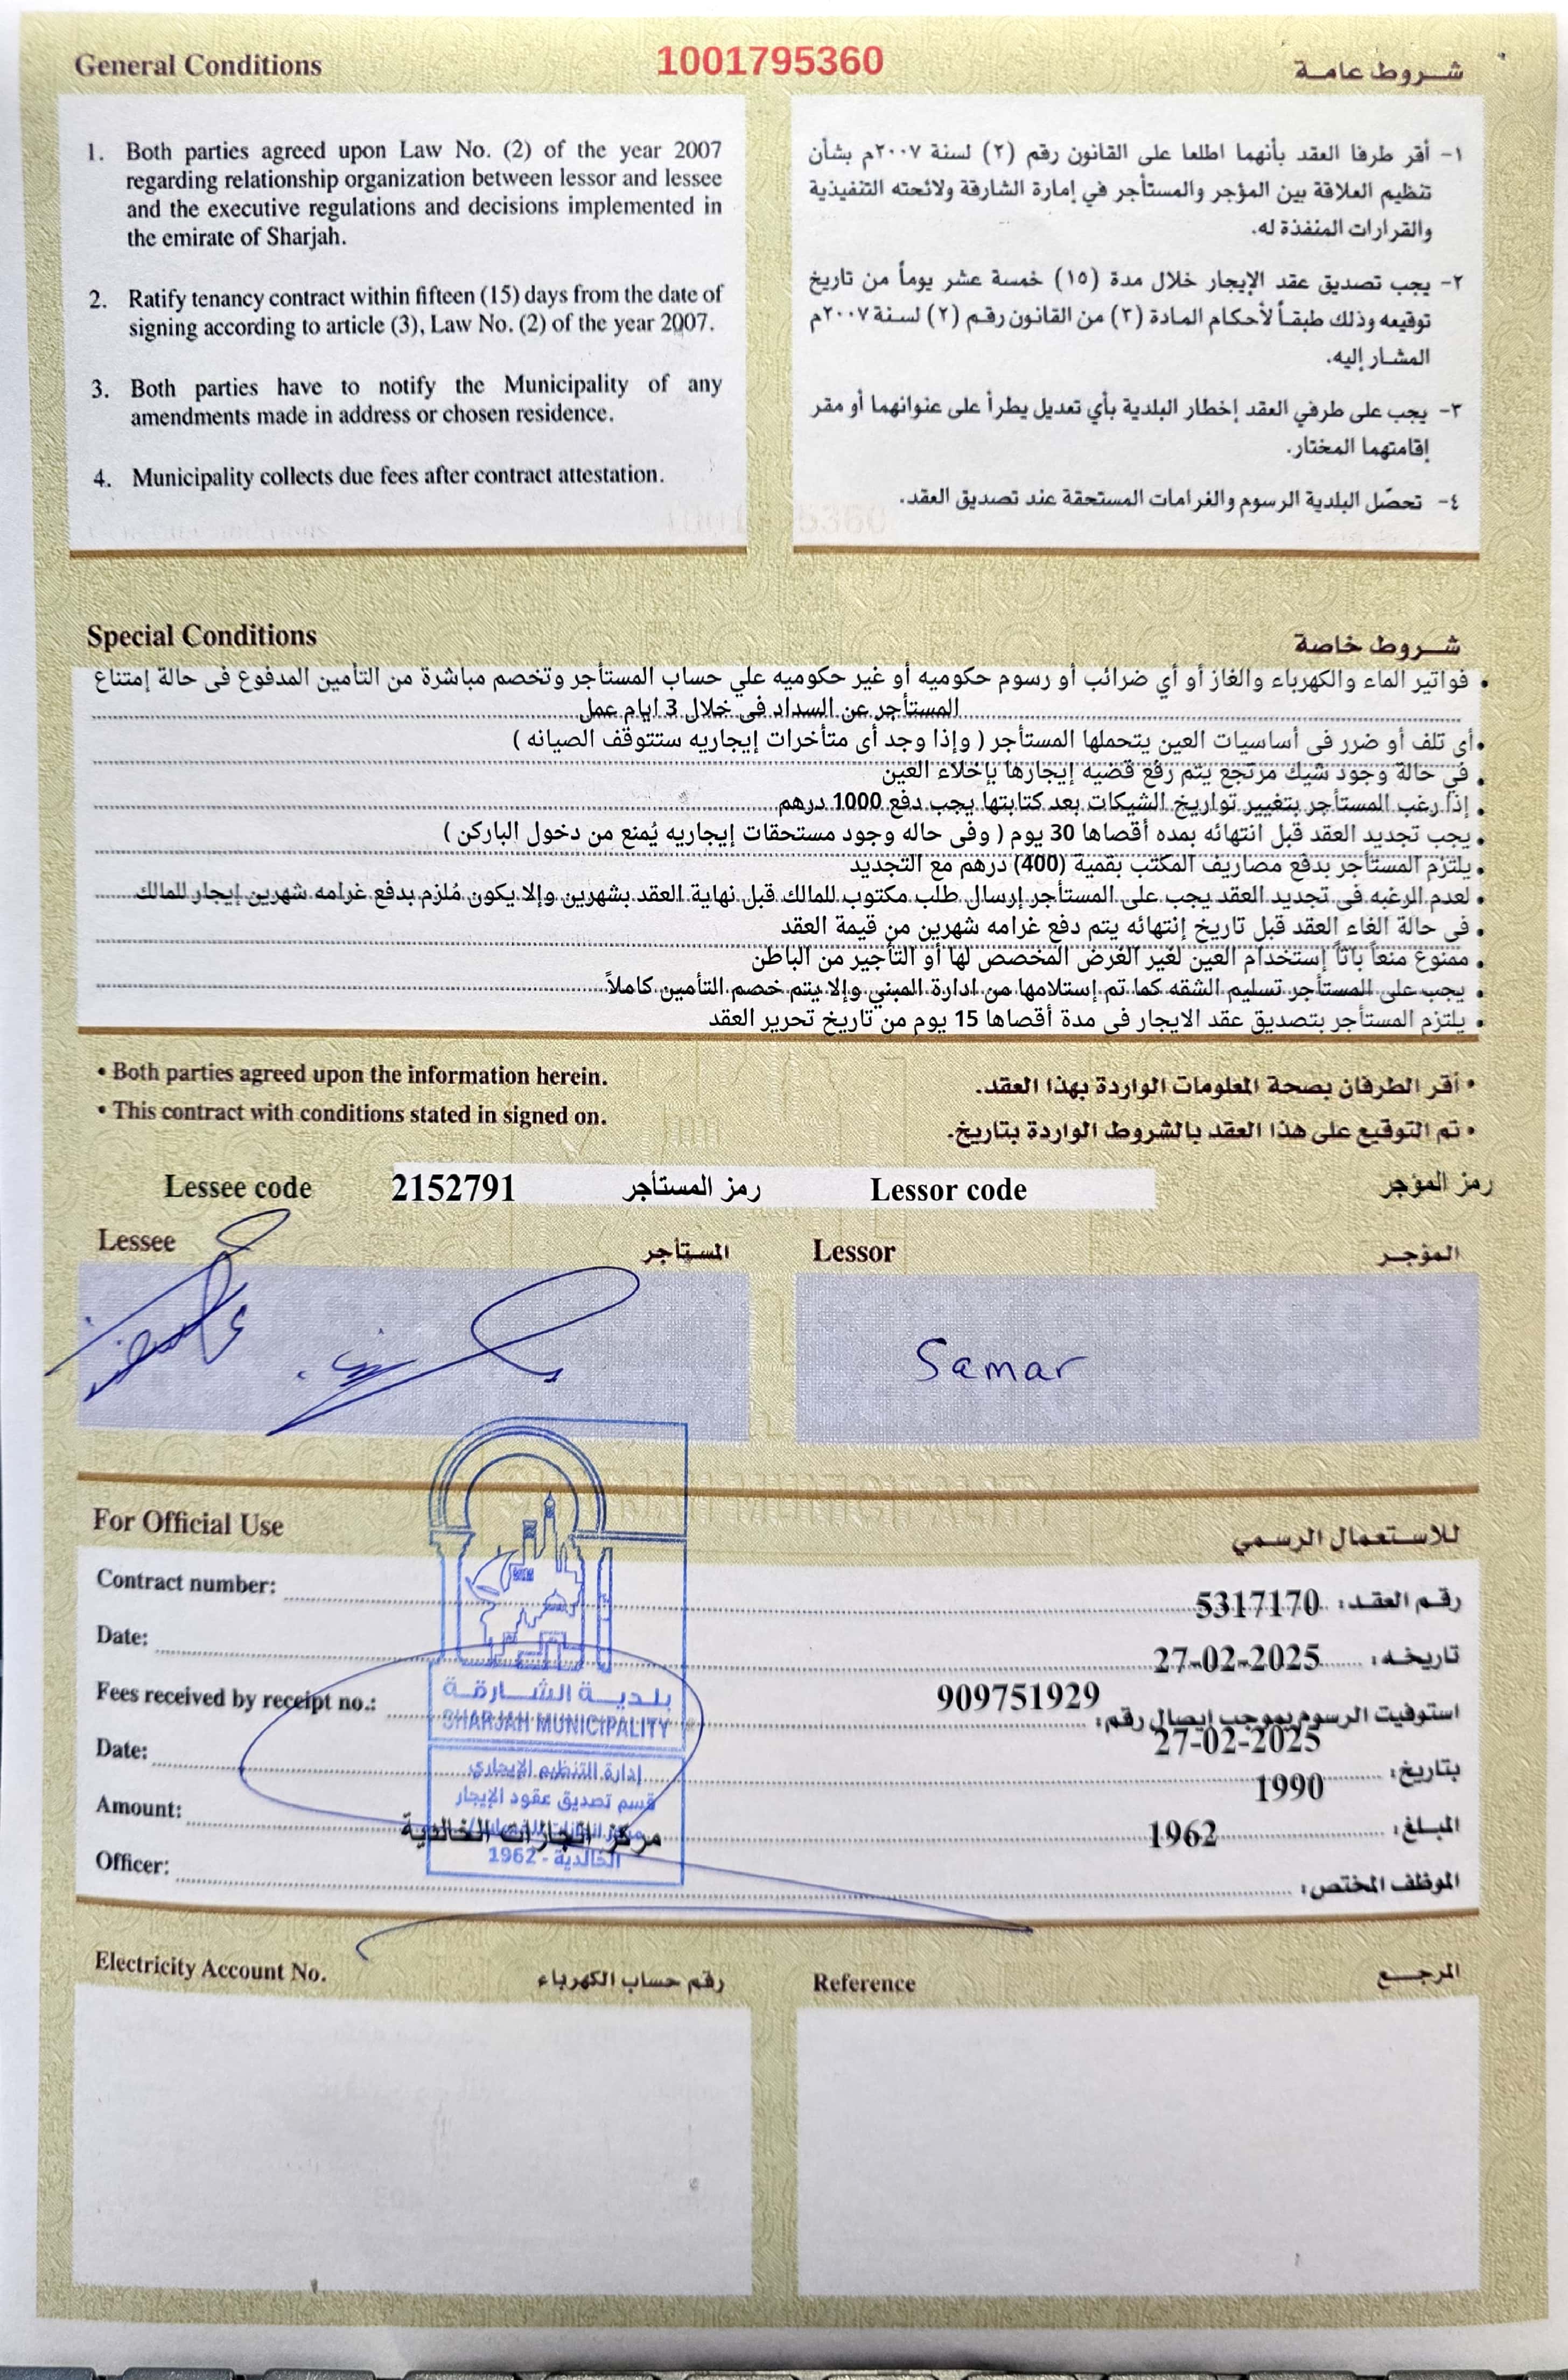 General Conditions
1001795360
شروط عامة
1. Both parties agreed upon Law No. (2) of the year 2007
regarding relationship organization between lessor and lessee
and the executive regulations and decisions implemented in
the emirate of Sharjah.
2. Ratify tenancy contract within fifteen (15) days from the date of
signing according to article (3), Law No. (2) of the year 2007.
3. Both parties have to notify the Municipality of any
amendments made in address or chosen residence.
4. Municipality collects due fees after contract attestation.
١- أقر طرفا العقد بأنهما اطلعا على القانون رقم (٢) لسنة ٢٠٠٧م بشأن
تنظيم العلاقة بين المؤجر والمستأجر في إمارة الشارقة ولائحته التنفيذية
والقرارات المنفذة له.
٢- يجب تصديق عقد الإيجار خلال مدة (١٥) خمسة عشر يوماً من تاريخ
توقيعه وذلك طبقاً لأحكام المادة (٣) من القانون رقم (٢) لسنة ٢٠٠٧م
المشار إليه.
٣- يجب على طرفي العقد إخطار البلدية بأي تعديل يطرأ على عنوانهما أو مقر
إقامتهما المختار.
٤- تحصّل البلدية الرسوم والغرامات المستحقة عند تصديق العقد.
Special Conditions
شروط خاصة
• فواتير الماء والكهرباء والغاز أو أي ضرائب أو رسوم حكوميه أو غير حكوميه علي حساب المستأجر وتخصم مباشرة من التأمين المدفوع فى حالة إمتناع
المستأجر عن السداد فى خلال 3 ايام عمل
• أى تلف أو ضرر فى أساسيات العين يتحملها المستأجر ( وإذا وجد أى متأخرات إيجاريه ستتوقف الصيانه )
• في حالة وجود شيك مرتجع يتم رفع قضيه إيجارها بإخلاء العين
• إذا رغب المستأجر بتغيير تواريخ الشيكات بعد كتابتها يجب دفع 1000 درهم
• يجب تجديد العقد قبل انتهائه بمده أقصاها 30 يوم ( وفى حاله وجود مستحقات إيجاريه يُمنع من دخول الباركن )
• يلتزم المستأجر بدفع مصاريف المكتب بقمية (400) درهم مع التجديد
• لعدم الرغبه فى تجديد العقد يجب على المستأجر إرسال طلب مكتوب للمالك قبل نهاية العقد بشهرين وإلا يكون مُلزم بدفع غرامه شهرين إيجار للمالك
• فى حالة الغاء العقد قبل تاريخ إنتهائه يتم دفع غرامه شهرين من قيمة العقد
• ممنوع منعاً باتاً إستخدام العين لغير الغرض المخصص لها أو التأجير من الباطن
• يجب على المستأجر تسليم الشقه كما تم إستلامها من ادارة المبني وإلا يتم خصم التأمين كاملاً
• يلتزم المستأجر بتصديق عقد الايجار فى مدة أقصاها 15 يوم من تاريخ تحرير العقد
• Both parties agreed upon the information herein.
• This contract with conditions stated in signed on.
• أقر الطرفان بصحة المعلومات الواردة بهذا العقد.
• تم التوقيع على هذا العقد بالشروط الواردة بتاريخ.
Lessee code 2152791 رمز المستأجر
Lessor code رمز المؤجر
Lessee المستأجر
Lessor المؤجر
Samar
For Official Use
للاستعمال الرسمي
Contract number: 5317170 رقم العقد:
Date: 27-02-2025 تاريخه:
Fees received by receipt no.: 909751929 استوفيت الرسوم بموجب ايصال رقم:
27-02-2025
Date: بتاريخ:
1990
Amount: 1962 المبلغ:
Officer: الموظف المختص:
بلدية الشارقة
SHARJAH MUNICIPALITY
إدارة التنظيم الإيجاري
قسم تصديق عقود الإيجار
مركز انجازات الخالدية
الخالدية - 1962
Electricity Account No. رقم حساب الكهرباء
Reference المرجع